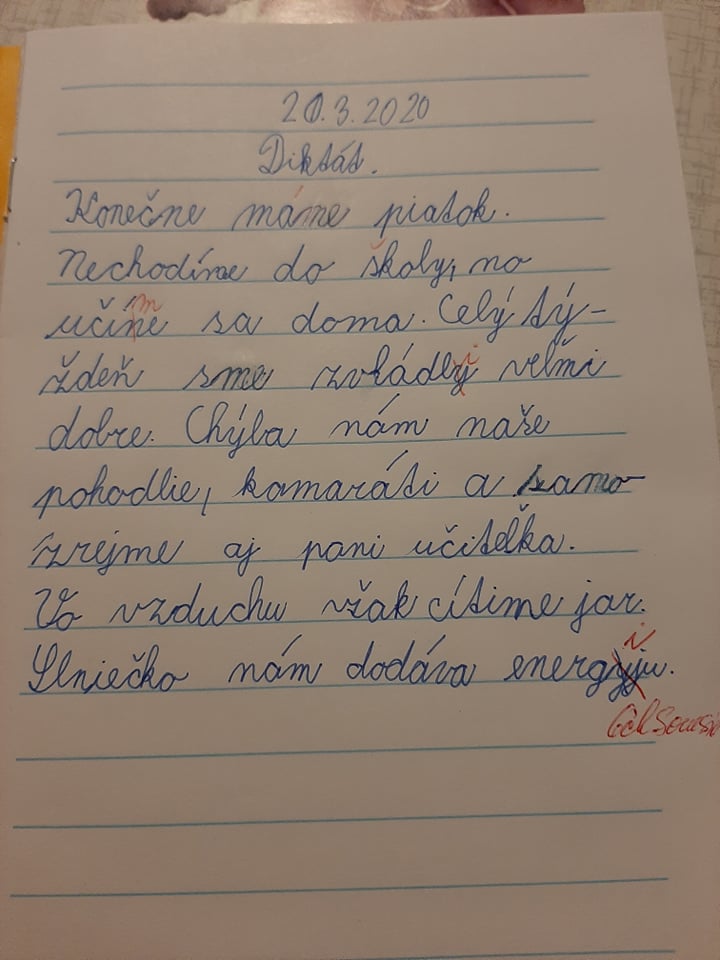 20.3.2020
Diktát.
Konečne máme piatok.
Nechodíme do školy, no
učíme sa doma. Celý tý-
ždeň sme zvládli veľmi
dobre. Chýba nám naše
pohodlie, kamaráti a samo-
zrejme aj pani učiteľka.
Vo vzduchu však cítime jar.
Slniečko nám dodáva energiu.